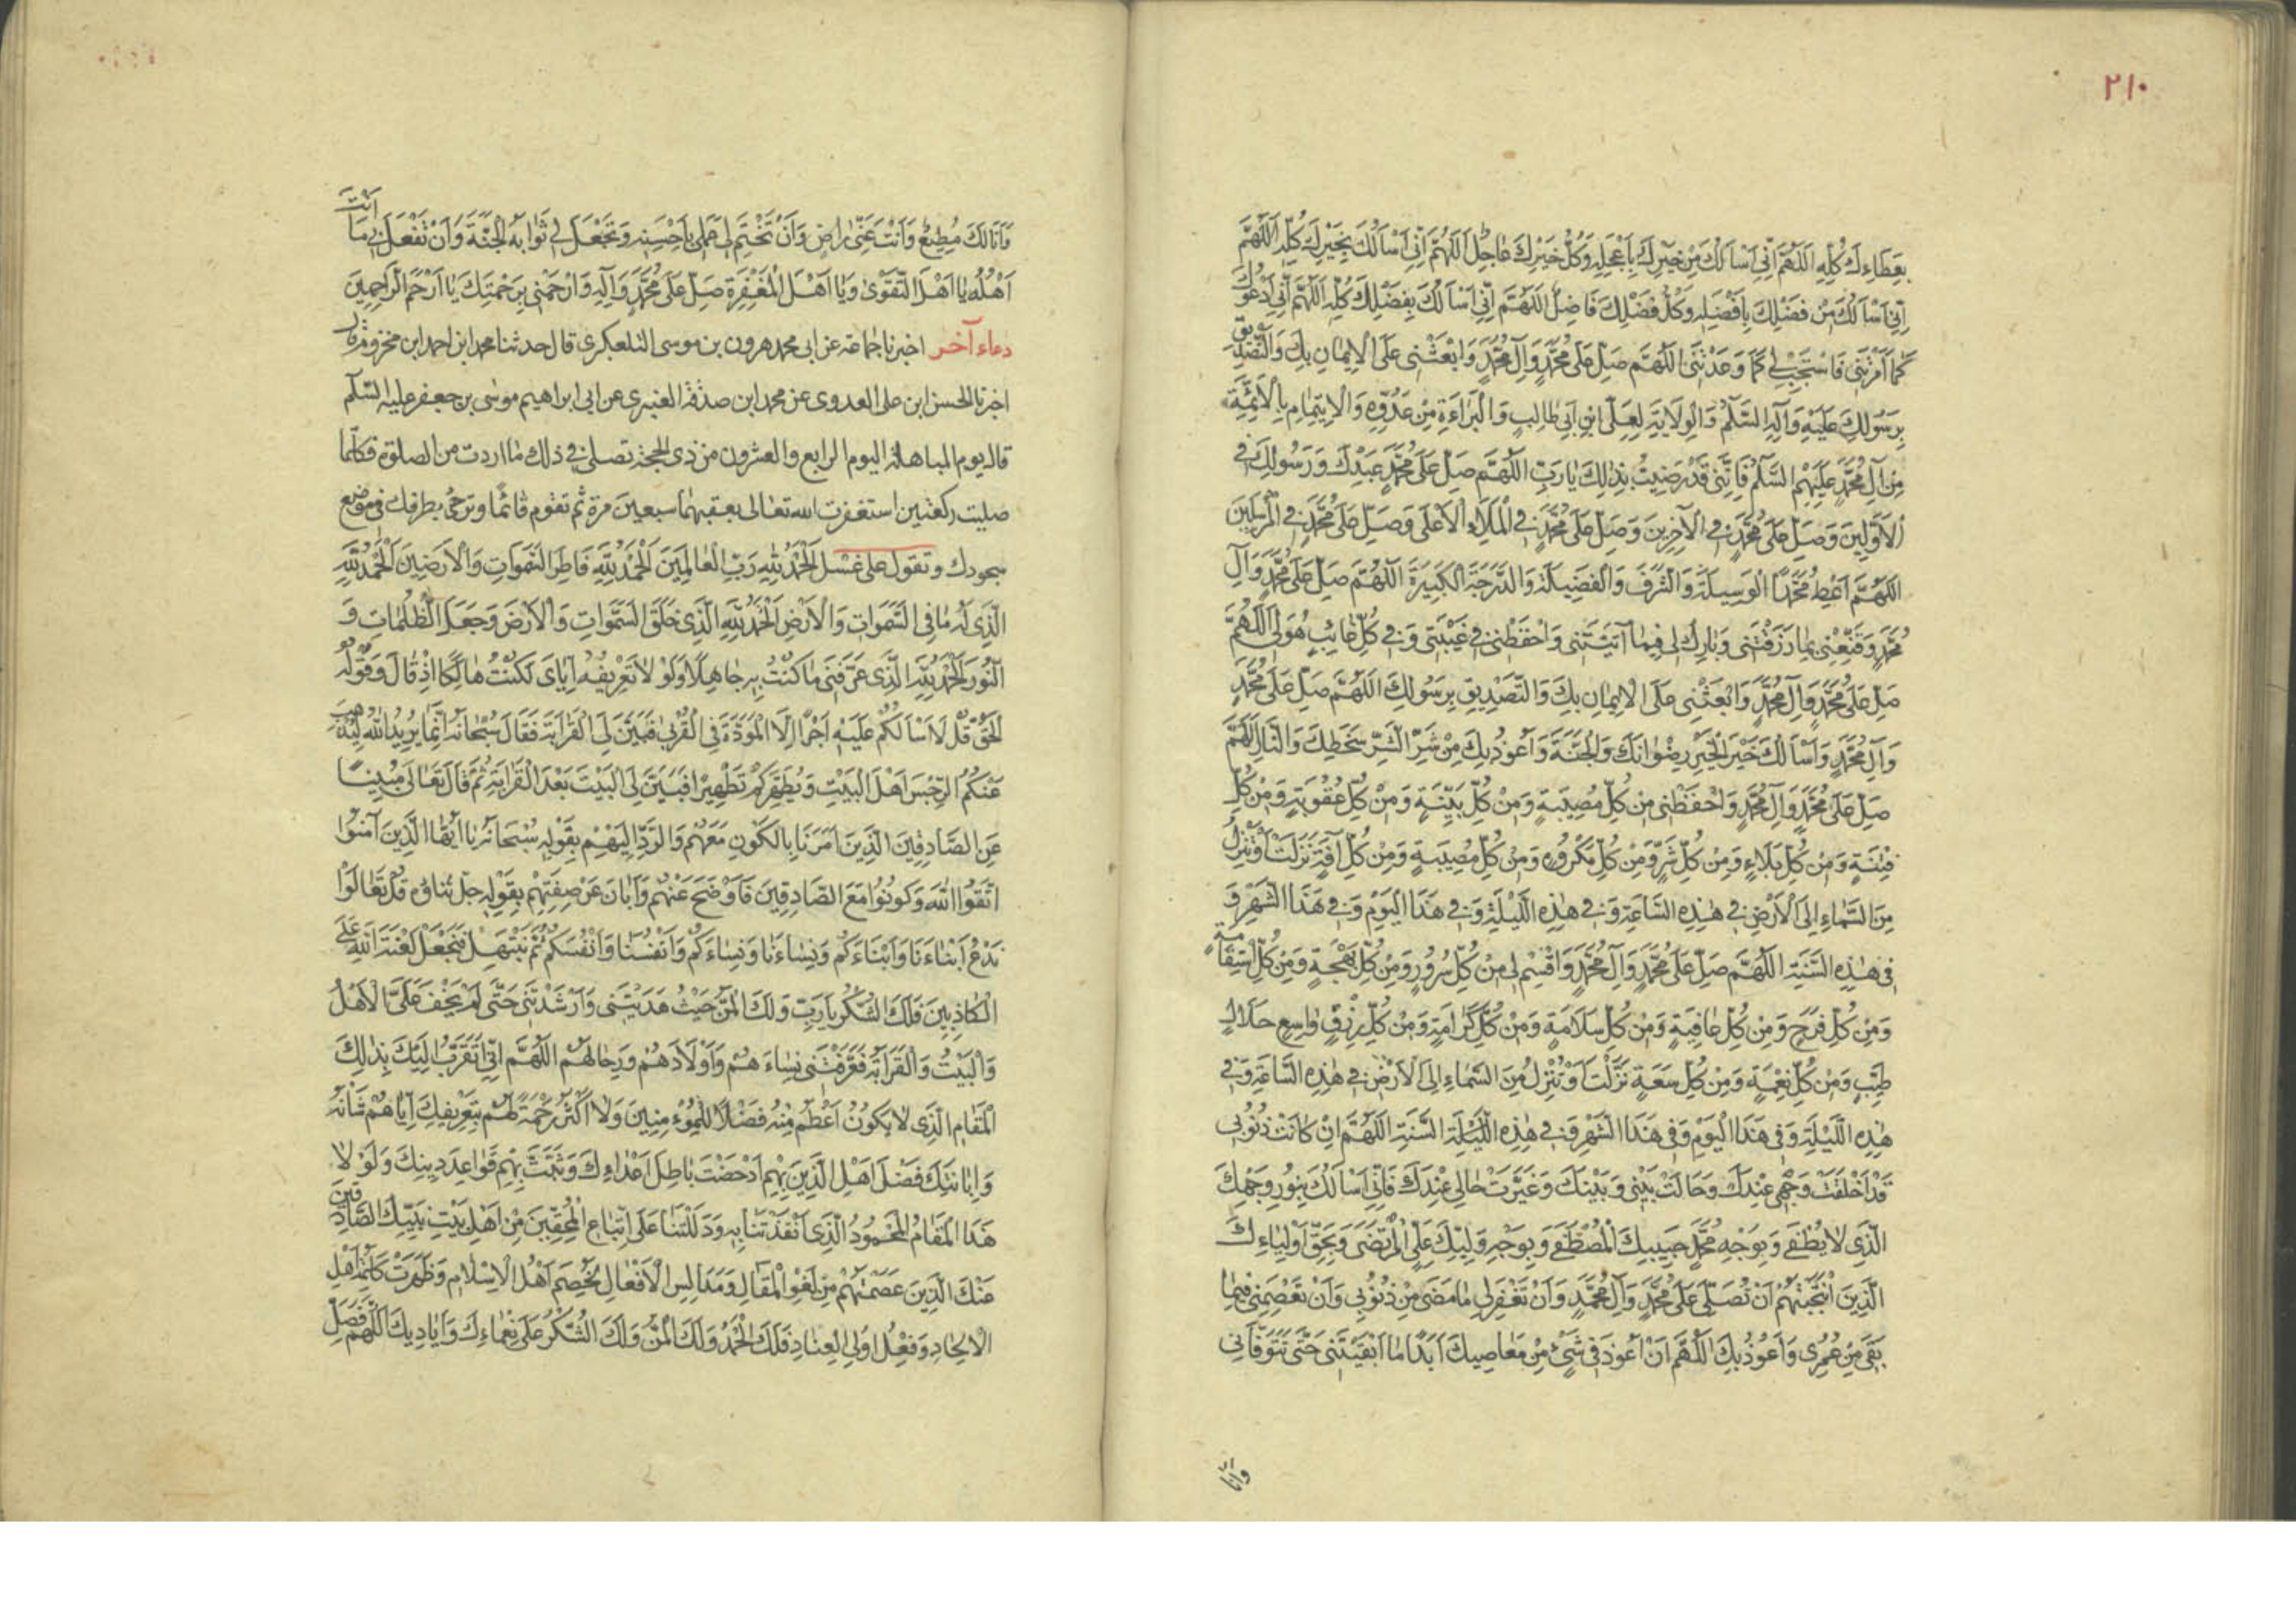 ٢١٠
بِعَطَاءِكَ كُلِّهِ اَللّٰهُمَّ اِنّى اَسْاَلُكَ مِنْ خَيْرِكَ بِاَعْجَلِهِ وَكُلُّ خَيْرِكَ عَاجِلٌ اَللّٰهُمَّ اِنّى اَسْاَلُكَ بِخَيْرِكَ كُلِّهِ اَللّٰهُمَّ
اِنّى اَسْاَلُكَ مِنْ فَضْلِكَ بِاَفْضَلِهِ وَكُلُّ فَضْلِكَ فَاضِلٌ اَللّٰهُمَّ اِنّى اَسْاَلُكَ بِفَضْلِكَ كُلِّهِ اَللّٰهُمَّ اِنّى اَدْعُوكَ
كَمَا اَمَرْتَنى فَاسْتَجِبْ لى كَمَا وَعَدْتَنى اَللّٰهُمَّ صَلِّ عَلى مُحَمَّدٍ وَآلِ مُحَمَّدٍ وَابْعَثْنى عَلَى الْاِيمَانِ بِكَ وَالتَّصْدِيقِ
بِرَسُولِكَ عَلَيْهِ وَآلِهِ السَّلَامُ وَالْوِلَايَةِ لِعَلىِّ ابْنِ اَبى طَالِبٍ وَالْبَرَاءَةِ مِنْ عَدُوِّهِ وَالْاِيتِمَامِ بِالْاَئِمَّةِ
مِنْ آلِ مُحَمَّدٍ عَلَيْهِمُ السَّلَامُ فَاِنَّنى قَدْ رَضِيتُ بِذٰلِكَ يَا رَبِّ اَللّٰهُمَّ صَلِّ عَلى مُحَمَّدٍ عَبْدِكَ وَرَسُولِكَ فى
الْاَوَّلِينَ وَصَلِّ عَلى مُحَمَّدٍ فى الْآخِرِينَ وَصَلِّ عَلى مُحَمَّدٍ فى الْمَلَاءِ الْاَعْلى وَصَلِّ عَلى مُحَمَّدٍ فى الْمُرْسَلِينَ
اَللّٰهُمَّ اَعْطِ مُحَمَّدًا الْوَسِيلَةَ وَالشَّرَفَ وَالْفَضِيلَةَ وَالدَّرَجَةَ الْكَبِيرَةَ اَللّٰهُمَّ صَلِّ عَلى مُحَمَّدٍ وَآلِ
مُحَمَّدٍ وَقَنِّعْنى بِمَا رَزَقْتَنى وَبَارِكْ لى فِيمَا آتَيْتَنى وَاحْفَظْنى فى غَيْبَتى وَفى كُلِّ غَائِبٍ هُوَ لى اَللّٰهُمَّ
صَلِّ عَلى مُحَمَّدٍ وَآلِ مُحَمَّدٍ وَابْعَثْنى عَلَى الْاِيمَانِ بِكَ وَالتَّصْدِيقِ بِرَسُولِكَ اَللّٰهُمَّ صَلِّ عَلى مُحَمَّدٍ
وَآلِ مُحَمَّدٍ وَاَسْاَلُكَ خَيْرَ الْخَيْرِ رِضْوَانَكَ وَالْجَنَّةَ وَاَعُوذُ بِكَ مِنْ شَرِّ الشَّرِّ سَخَطِكَ وَالنَّارِ اَللّٰهُمَّ
صَلِّ عَلى مُحَمَّدٍ وَآلِ مُحَمَّدٍ وَاحْفَظْنى مِنْ كُلِّ مُصِيبَةٍ وَمِنْ كُلِّ بَلِيَّةٍ وَمِنْ كُلِّ عُقُوبَةٍ وَمِنْ كُلِّ
فِتْنَةٍ وَمِنْ كُلِّ بَلَاءٍ وَمِنْ كُلِّ شَرٍّ وَمِنْ كُلِّ مَكْرُوهٍ وَمِنْ كُلِّ مُصِيبَةٍ وَمِنْ كُلِّ آفَةٍ نَزَلَتْ اَوْ تَنْزِلُ
مِنَ السَّمَاءِ اِلَى الْاَرْضِ فى هٰذِهِ السَّاعَةِ وَفى هٰذِهِ اللَّيْلَةِ وَفى هٰذَا الْيَوْمِ وَفى هٰذَا الشَّهْرِ وَ
فى هٰذِهِ السَّنَةِ اَللّٰهُمَّ صَلِّ عَلى مُحَمَّدٍ وَآلِ مُحَمَّدٍ وَاقْسِمْ لى مِنْ كُلِّ سُرُورٍ وَمِنْ كُلِّ بَهْجَةٍ وَمِنْ كُلِّ اسْتِقَامَةٍ
وَمِنْ كُلِّ فَرَجٍ وَمِنْ كُلِّ عَافِيَةٍ وَمِنْ كُلِّ سَلَامَةٍ وَمِنْ كُلِّ كَرَامَةٍ وَمِنْ كُلِّ رِزْقٍ وَاسِعٍ حَلَالٍ
طَيِّبٍ وَمِنْ كُلِّ نِعْمَةٍ وَمِنْ كُلِّ سَعَةٍ نَزَلَتْ اَوْ تَنْزِلُ مِنَ السَّمَاءِ اِلَى الْاَرْضِ فى هٰذِهِ السَّاعَةِ وَفى
هٰذِهِ اللَّيْلَةِ وَفى هٰذَا الْيَوْمِ وَفى هٰذَا الشَّهْرِ وَفى هٰذِهِ اللَّيْلَةِ السَّنَةِ اَللّٰهُمَّ اِنْ كَانَتْ ذُنُوبى
قَدْ اَخْلَقَتْ وَجْهى عِنْدَكَ وَحَالَتْ بَيْنى وَبَيْنَكَ وَغَيَّرَتْ حَالى عِنْدَكَ فَاِنّى اَسْاَلُكَ بِنُورِ وَجْهِكَ
الَّذى لَا يُطْفَى وَبِوَجْهِ مُحَمَّدٍ حَبِيبِكَ الْمُصْطَفى وَبِوَجْهِ وَلِيِّكَ عَلِىٍّ الْمُرْتَضى وَبِحَقِّ اَوْلِيَاءِكَ
الَّذِينَ انْتَجَبْتَهُمْ اَنْ تُصَلِّىَ عَلى مُحَمَّدٍ وَآلِ مُحَمَّدٍ وَاَنْ تَغْفِرَ لى مَا مَضى مِنْ ذُنُوبى وَاَنْ تَعْصِمَنى فِيمَا
بَقِىَ مِنْ عُمُرى وَاَعُوذُ بِكَ اَللّٰهُمَّ اَنْ اَعُودَ فى شَىْءٍ مِنْ مَعَاصِيكَ اَبَدًا مَا اَبْقَيْتَنى حَتّى تَتَوَفَّانى
وانا
وَاَنَا لَكَ مُطِيعٌ وَاَنْتَ عَنّى رَاضٍ وَاَنْ تَخْتِمَ لى عَمَلى بِاَحْسَنِهِ وَتَجْعَلَ لى ثَوَابَهُ الْجَنَّةَ وَاَنْ تَفْعَلَ بى مَا اَنْتَ
اَهْلُهُ يَا اَهْلَ التَّقْوى وَيَا اَهْلَ الْمَغْفِرَةِ صَلِّ عَلى مُحَمَّدٍ وَآلِهِ وَارْحَمْنى بِرَحْمَتِكَ يَا اَرْحَمَ الرَّاحِمِينَ
دعاء آخر اخبرنا جماعة عن ابى محمد هرون بن موسى التلعكبرى قال حدثنا محمد ابن احمد ابن مخزوم قال
اخبرنا الحسن ابن على العدوى عن محمد ابن صدقة العنبرى عن ابى ابراهيم موسى بن جعفر عليه السّلام
قال يوم المباهلة اليوم الرابع والعشرون من ذى الحجة تصلى فى ذلك ما اردت من الصلوة فكلّما
صليت ركعتين استغفرت الله تعالى بعقبهما سبعين مرة ثم تقوم قائمًا وترمى بطرفك فى موضع
سجودك وتقول على غسل اَلْحَمْدُ لِلّٰهِ رَبِّ الْعَالَمِينَ اَلْحَمْدُ لِلّٰهِ فَاطِرِ السَّمٰوَاتِ وَالْاَرَضِينَ اَلْحَمْدُ لِلّٰهِ
الَّذى لَهُ مَا فِى السَّمٰوَاتِ وَالْاَرْضِ اَلْحَمْدُ لِلّٰهِ الَّذى خَلَقَ السَّمٰوَاتِ وَالْاَرْضَ وَجَعَلَ الظُّلُمَاتِ وَ
النُّورَ اَلْحَمْدُ لِلّٰهِ الَّذى عَرَّفَنى مَا كُنْتُ بِهِ جَاهِلًا وَلَوْ لَا تَعْرِيفُهُ اِيَّاىَ لَكُنْتُ هَالِكًا اِذْ قَالَ وَقَوْلُهُ
الْحَقُّ قُلْ لَا اَسْاَلُكُمْ عَلَيْهِ اَجْرًا اِلَّا الْمَوَدَّةَ فِى الْقُرْبى فَبَيَّنَ لِىَ الْقَرَابَةَ فَقَالَ سُبْحَانَهُ اِنَّمَا يُرِيدُ اللّٰهُ لِيُذْهِبَ
عَنْكُمُ الرِّجْسَ اَهْلَ الْبَيْتِ وَيُطَهِّرَكُمْ تَطْهِيرًا فَبَيَّنَ لِىَ الْبَيْتَ بَعْدَ الْقَرَابَةِ ثُمَّ قَالَ تَعَالى مُبِينًا
عَنِ الصَّادِقِينَ الَّذِينَ اَمَرَنَا بِالْكَوْنِ مَعَهُمْ وَالرَّدِّ اِلَيْهِمْ بِقَوْلِهِ سُبْحَانَهُ يَا اَيُّهَا الَّذِينَ آمَنُوا
اتَّقُوا اللّٰهَ وَكُونُوا مَعَ الصَّادِقِينَ فَاَوْضَحَ عَنْهُمْ وَاَبَانَ عَنْ صِفَتِهِمْ بِقَوْلِهِ جَلَّ ثَنَاؤُهُ قُلْ تَعَالَوْا
نَدْعُ اَبْنَاءَنَا وَاَبْنَاءَكُمْ وَنِسَاءَنَا وَنِسَاءَكُمْ وَاَنْفُسَنَا وَاَنْفُسَكُمْ ثُمَّ نَبْتَهِلْ فَنَجْعَلْ لَعْنَةَ اللّٰهِ عَلَى
الْكَاذِبِينَ فَلَكَ الشُّكْرُ يَا رَبِّ وَلَكَ الْمَنُّ حَيْثُ هَدَيْتَنى وَاَرْشَدْتَنى حَتّى لَمْ يَخْفَ عَلَىَّ الْاَهْلُ
وَالْبَيْتُ وَالْقَرَابَةُ فَعَرَّفْتَنى نِسَاءَهُمْ وَاَوْلَادَهُمْ وَرِجَالَهُمْ اَللّٰهُمَّ اِنّى اَتَقَرَّبُ اِلَيْكَ بِذٰلِكَ
الْمَقَامِ الَّذى لَا يَكُونُ اَعْظَمَ مِنْهُ فَضْلًا لِلْمُؤْمِنِينَ وَلَا اَكْثَرَ رَحْمَةً لَهُمْ بِتَعْرِيفِكَ اِيَّاهُمْ شَاْنَهُ
وَاِبَانَتِكَ فَضْلَ اَهْلِ الَّذِينَ بِهِمْ اَدْحَضْتَ بَاطِلَ اَعْدَاءِكَ وَثَبَّتَّ بِهِمْ قَوَاعِدَ دِينِكَ وَلَوْ لَا
هٰذَا الْمَقَامُ الْمَحْمُودُ الَّذى اَنْقَذْتَنَا بِهِ وَدَلَلْتَنَا عَلَى اتِّبَاعِ الْمُحِقِّينَ مِنْ اَهْلِ بَيْتِ نَبِيِّكَ الصَّادِقِينَ
عَنْكَ الَّذِينَ عَصَمْتَهُمْ مِنْ لَغْوِ الْمَقَالِ وَمَدَانِسِ الْاَفْعَالِ لَخُصِمَ اَهْلُ الْاِسْلَامِ وَظَهَرَتْ كَلِمَةُ اَهْلِ
الْاِلْحَادِ وَفِعْلُ اُولِى الْعِنَادِ فَلَكَ الْحَمْدُ وَلَكَ الْمَنُّ وَلَكَ الشُّكْرُ عَلى نَعْمَاءِكَ وَاَيَادِيكَ اَللّٰهُمَّ فَصَلِّ